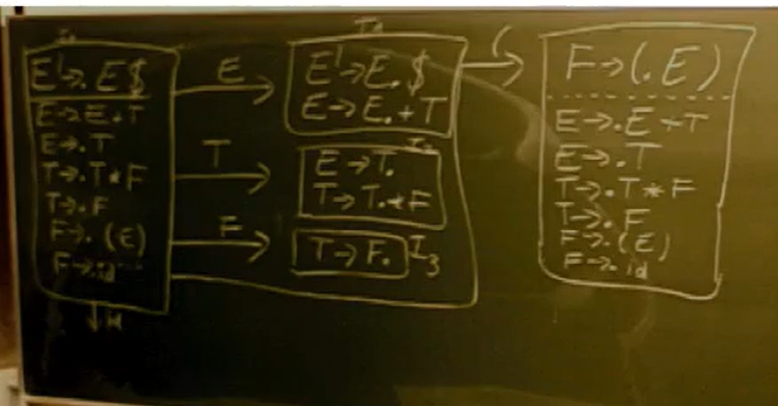 I₀
E'→.E$
E→E+T
E→.T
T→.T*F
T→.F
F→.(E)
F→.id
E
T
F
id
E'→E.$
E→E.+T
E→T.
T→T.*F
T→F.
I₃
(
F→(.E)
E→.E+T
E→.T
T→.T*F
T→.F
F→.(E)
F→.id